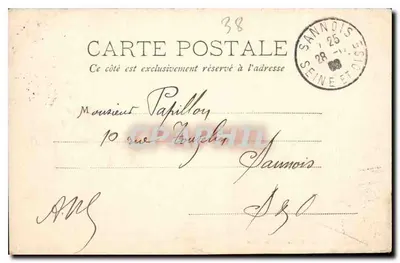 38
CARTE POSTALE
Ce côté est exclusivement réservé à l'adresse
SANNOIS
25
28
SEINE ET OISE
Monsieur Papillon
10 rue
Sannois
S & O